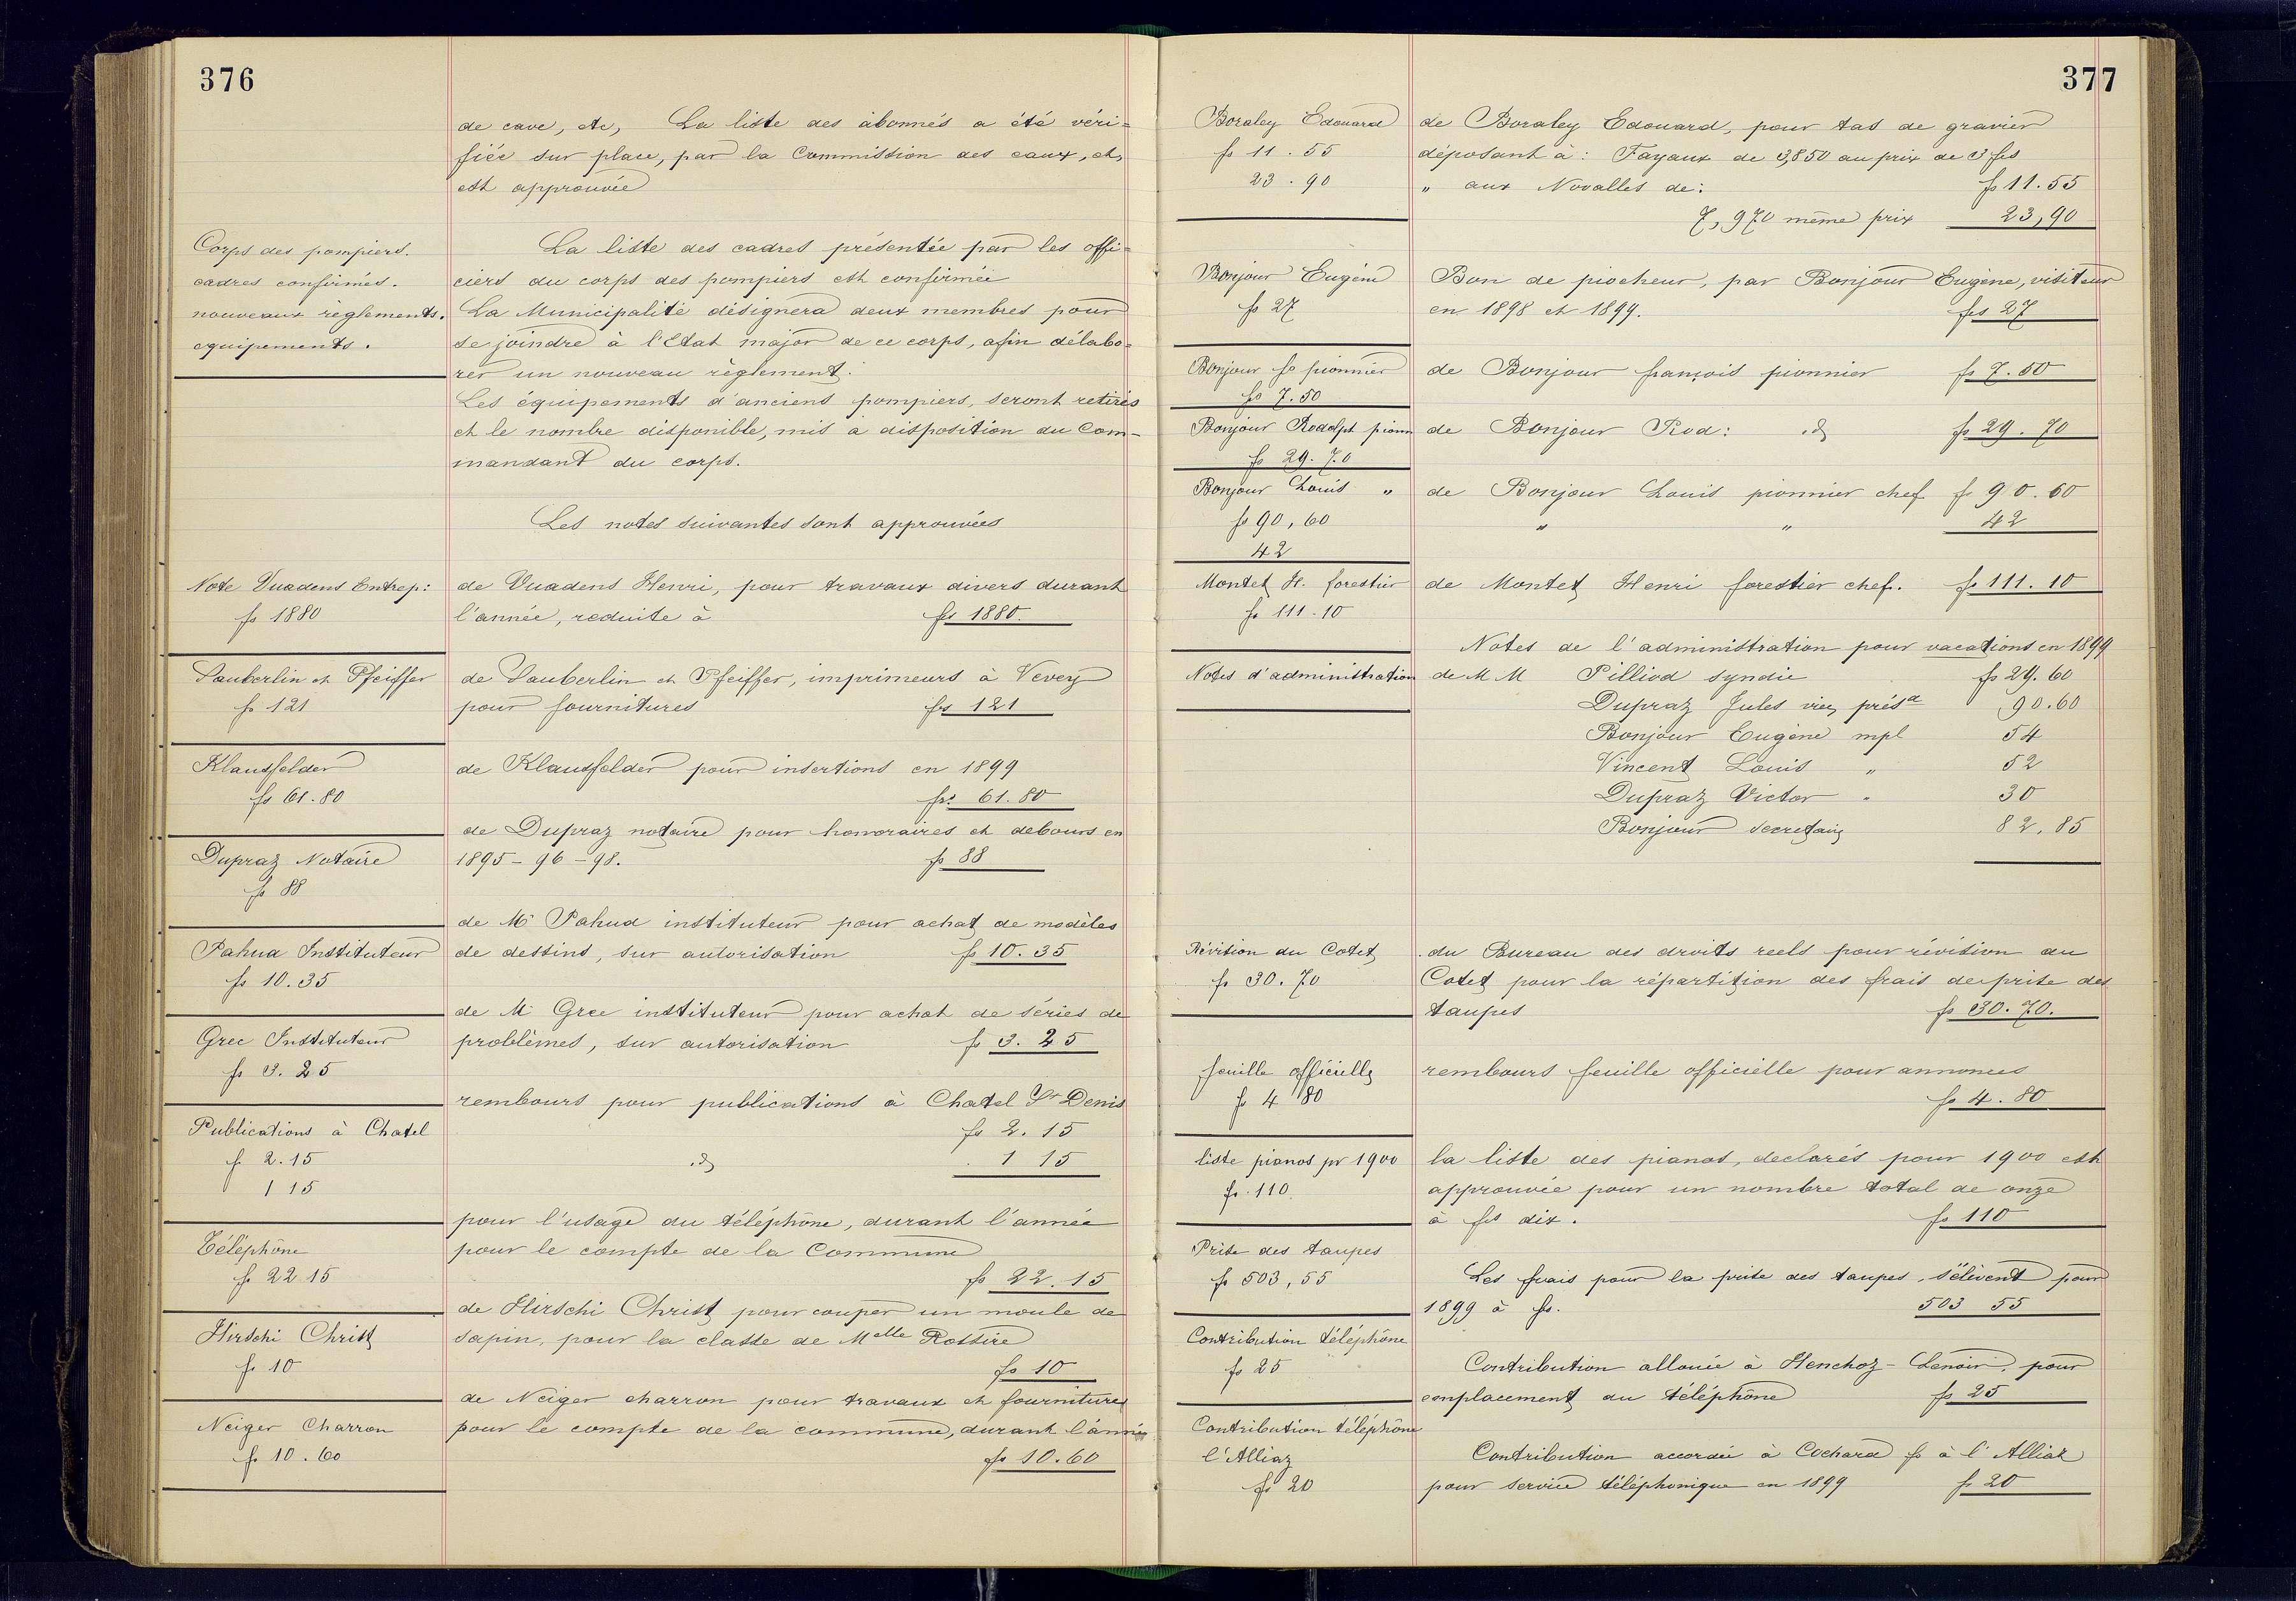 376
de cave, etc, La liste des abonnés a été véri=
fiée sur place, par la Commission des eaux, et,
est approuvée
Corps des pompiers.
cadres confirmés.
nouveaux règlements.
equipements.
La liste des cadres présentée par les offi=
ciers du corps des pompiers est confirmée
La Municipalité désignera deux membres pour
se joindre à l'Etat major de ce corps, afin délabo=
rer un nouveau règlement.
Les équipements d'anciens pompiers, seront retirés
et le nombre disponible, mis à disposition du Com-
mandant du corps.
Les notes suivantes sont approuvées
Note Vuadens Entrep:
fs 1880
de Vuadens Henri, pour travaux divers durant
l'année, reduite à fs 1880.
Sauberlin et Pfeiffer
fs 121
de Sauberlin et Pfeiffer, imprimeurs à Vevey
pour fournitures frs 121
Klausfelder
fs 61.80
de Klausfelder pour insertions en 1899
frs 61.80
Dupraz Notaire
fs 88
de Dupraz notaire pour honoraires et debours en
1895 - 96 - 98. fs 88
Pahud Instituteur
fs 10.35
de Mr Pahud instituteur pour achat de modèles
de dessins, sur autorisation fs 10.35
Grec Instituteur
fs 3.25
de Mr Grec instituteur pour achat de séries de
problèmes, sur autorisation fs 3.25
Publications à Chatel
fs 2.15
1 15
rembours pour publications à Chatel St Denis
fs 2.15
id 1 15
Téléphone
fs 22.15
pour l'usage du téléphone, durant l'année
pour le compte de la Commune
fs 22.15
Hirschi Christ
fs 10
de Hirschi Christ pour couper un moule de
sapin, pour la classe de Melle Rossire
fs 10
Neiger Charron
fs 10.60
de Neiger charron pour travaux et fournitures
pour le compte de la commune, durant l'année
fs 10.60
377
Boraley Edouard
fs 11.55
23.90
de Boraley Edouard, pour tas de gravier
déposant à: Fayaux de 3,850 au prix de 3 fcs
" aux Novalles de: fs 11.55
7,970 même prix 23,90
Bonjour Eugène
fs 27
Bon de piocheur, par Bonjour Eugène, visiteur
en 1898 et 1899. fcs 27
Bonjour fs pionnier
fs 7.50
de Bonjour françois pionnier fs 7.50
Bonjour Rodolph pionn
fs 29.70
de Bonjour Rod: id fs 29.70
Bonjour Louis "
fs 90,60
42
de Bonjour Louis pionnier chef fs 90.60
" " 42
Montet H. forestier
fs 111.10
de Montet Henri forestier chef. fs 111.10
Notes d'administration
Notes de l'administration pour vacations en 1899
de MM Pilliod syndic fs 29.60
Dupraz Jules vice présdt 90.60
Bonjour Eugène mpl 54
Vincent Louis " 52
Dupraz Victor " 30
Bonjour secretaire 82,85
Révision du Cotet
fs 30.70
du Bureau des droits reels pour révision du
Cotet pour la répartition des frais de prise des
taupes fs 30.70.
feuille officielle
fs 4 80
rembours feuille officielle pour annonces
fs 4.80
liste pianos pr 1900
fs 110.
la liste des pianos, declarés pour 1900 est
approuvée pour un nombre total de onze
à fcs dix. fs 110
Prise des taupes
fs 503,55
Les frais pour la prise des taupes, s'élèvent pour
1899 à fs. 503 55
Contribution téléphone
fs 25
Contribution allouée à Henchoz-Lenoir, pour
emplacement du téléphone fs 25
Contribution téléphone
l'Alliaz
fs 20
Contribution accordée à Cochard fs à l'Alliaz
pour service téléphonique en 1899 fs 20